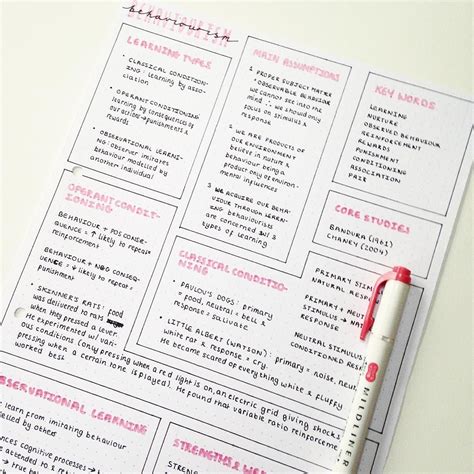 BEHAVIOURISM
behaviourism
LEARNING TYPES
• CLASSICAL CONDITION-
ING: learning by asso-
ciation
• OPERANT CONDITIONING
learning by consequences of
our action → punishments &
rewards
• OBSERVATIONAL LEARN-
ING: observer imitates
behaviour modelled by
another individual
MAIN ASSUMPTIONS
1 PROPER SUBJECT MATTER
= OBSERVABLE BEHAVIOUR
we cannot see into the
mind ∴ we should only
focus on stimulus &
response
2 WE ARE PRODUCTS OF
OUR ENVIRONMENT
believe in nature &
behaviour being a
product only of environ-
mental influences
3 WE ACQUIRE OUR BEHA-
VIOUR THROUGH LEARN-
ING behaviourists
are concerned
types of learning
KEY WORDS
LEARNING
NURTURE
OBSERVED BEHAVIOUR
REINFORCEMENT
REWARDS
PUNISHMENT
CONDITIONING
ASSOCIATION
PAIR
CORE STUDIES
BANDURA (1961)
CHANEY (2004)
OPERANT CONDIT-
IONING
BEHAVIOUR + POS CONSE-
QUENCE = ↑ likely to repeat
reinforcement
BEHAVIOUR + NEG CONSE-
QUENCE = ↓ likely to repeat
punishment
• SKINNER'S RATS: food
was delivered to rats
when they pressed a lever.
He experimented w/
various conditions (only pressing when a red light is on, an electric grid giving shocks,
when a certain tone is played). He found that variable ratio reinforcement
worked best
CLASSICAL CONDITIO-
NING
• PAVLOV'S DOGS: primary
food, neutral = bell &
response = salivate
• LITTLE ALBERT (WATSON): primary = noise, neu
white rat & response = cry.
He became scared of everything white & fluffy
PRIMARY STIMU
NATURAL RESPON
PRIMARY + NEUT
STIMULUS → NAT
RESPONSE
NEUTRAL STIMULUS
CONDITIONED RESP
OBSERVATIONAL LEARNING
learn from imitating behaviour
ences cognitive processes →
STRENGTHS & WE
MILDLINER